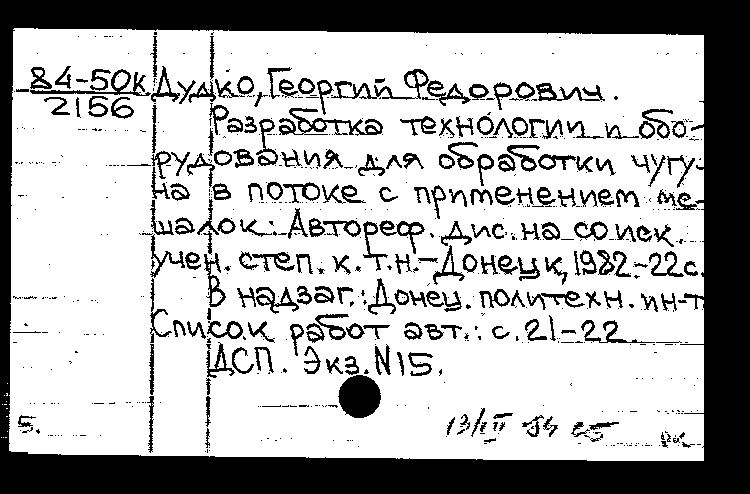 84-50к Дудко, Георгий Федорович.
2156
Разработка технологии и обо-
рудования для обработки чугу-
на в потоке с применением ме-
шалок: Автореф. дис. на соиск.
учен. степ. к.т.н.-Донецк, 1982-22с.
В надзаг.: Донец. политехн. ин-т
Список работ авт.: с. 21-22.
ДСП. Экз. N15.
5.